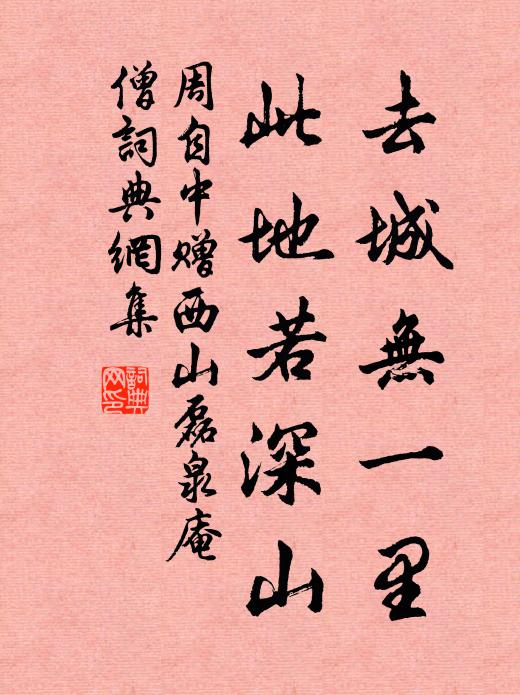 去城無一里
此地若深山
周自中贈西山磊泉庵
僧詞典網集
詞典
网印